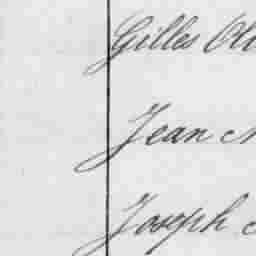 Gilles
Jean
Joseph